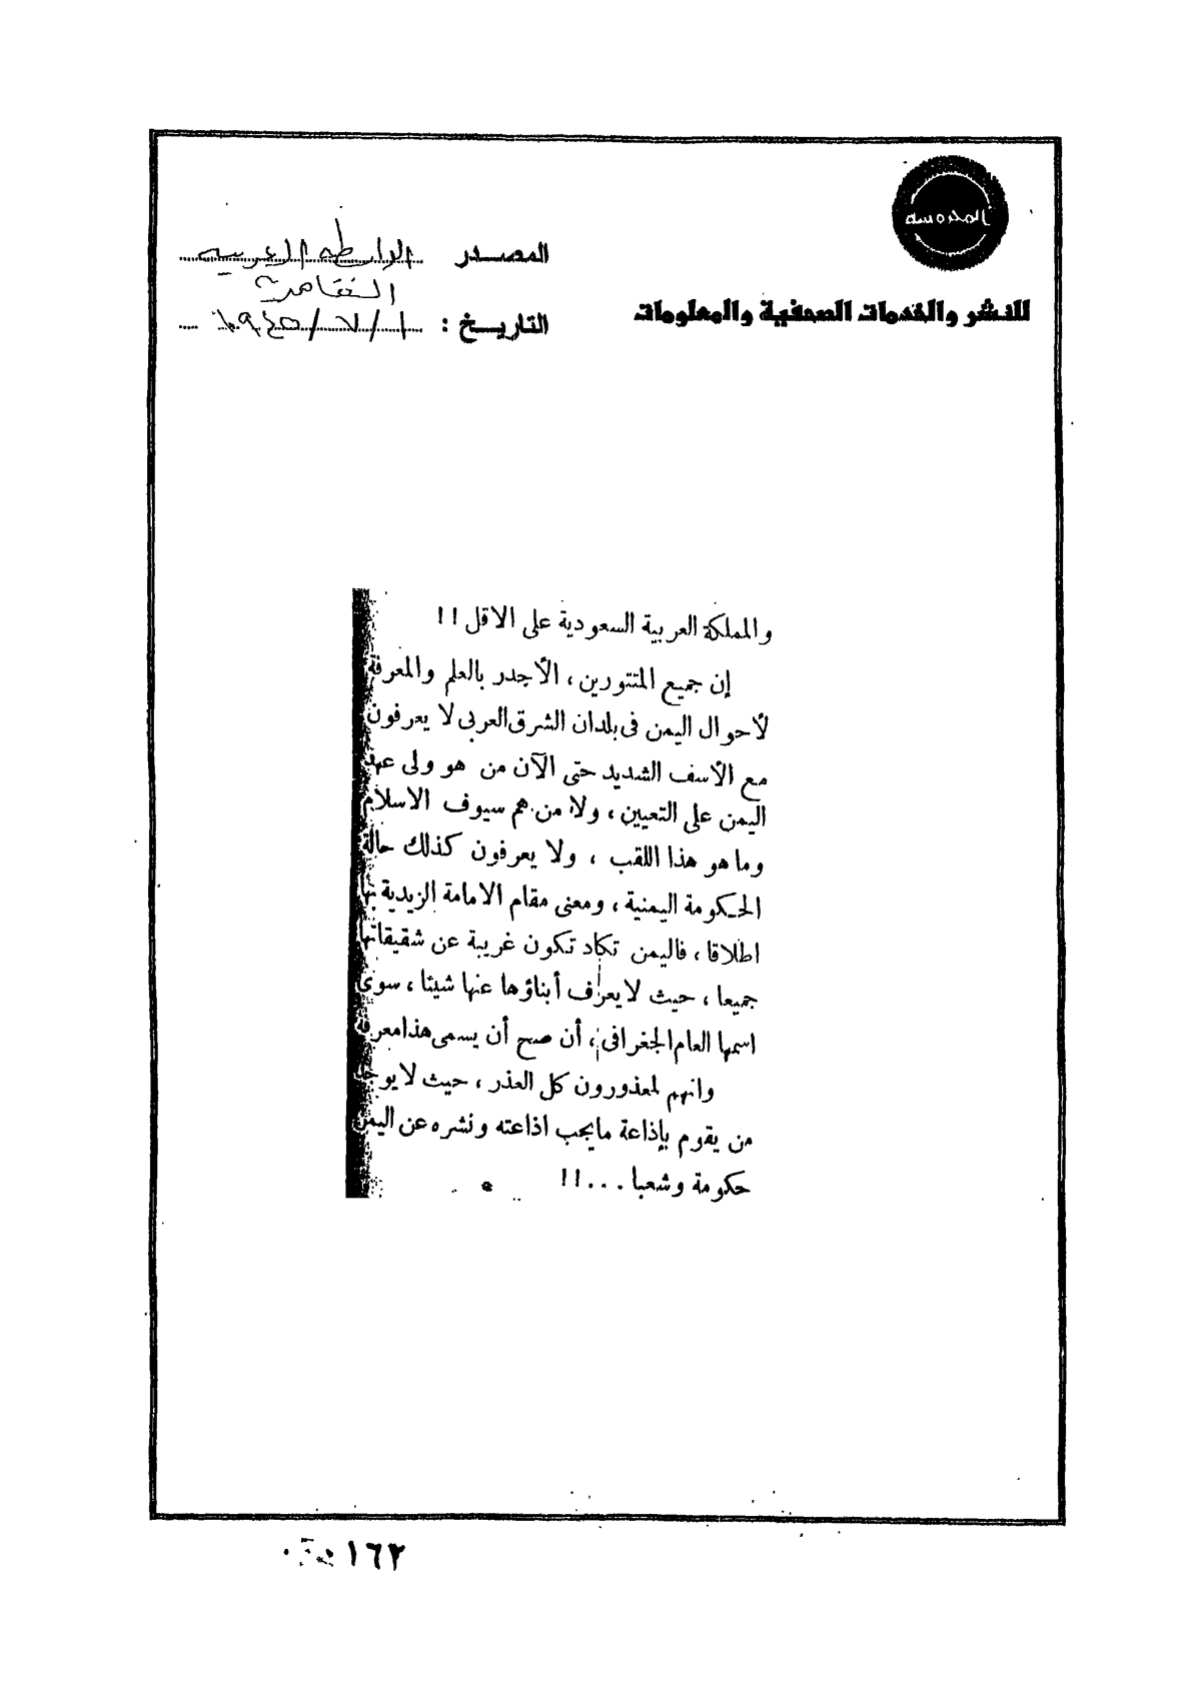 المحروسة
للنشر والخدمات الصحفية والمعلومات
المصدر الرابطة العربية
القاهرة
التاريخ : ١/٧/١٩٤٥
والمملكة العربية السعودية على الاقل !!
إن جميع المتنورين ، الأجدر بالعلم والمعرفة
لأحوال اليمن فى بلدان الشرق العربى لا يعرفون
مع الأسف الشديد حتى الآن من هو ولى عهد
اليمن على التعيين ، ولا من هم سيوف الاسلام
وما هو هذا اللقب ، ولا يعرفون كذلك حالة
الحكومة اليمنية ، ومعنى مقام الامامة الزيدية بها
اطلاقا ، فاليمن تكاد تكون غريبة عن شقيقاتها
جميعا ، حيث لا يعرف أبناؤها عنها شيئا ، سوى
اسمها العام الجغرافى ، أن صح أن يسمى هذا معرفة
وانهم لمعذورون كل العذر ، حيث لا يوجد
من يقوم بإذاعة مايجب اذاعته ونشره عن اليمن
حكومة وشعبا . . . !!
١٦٢